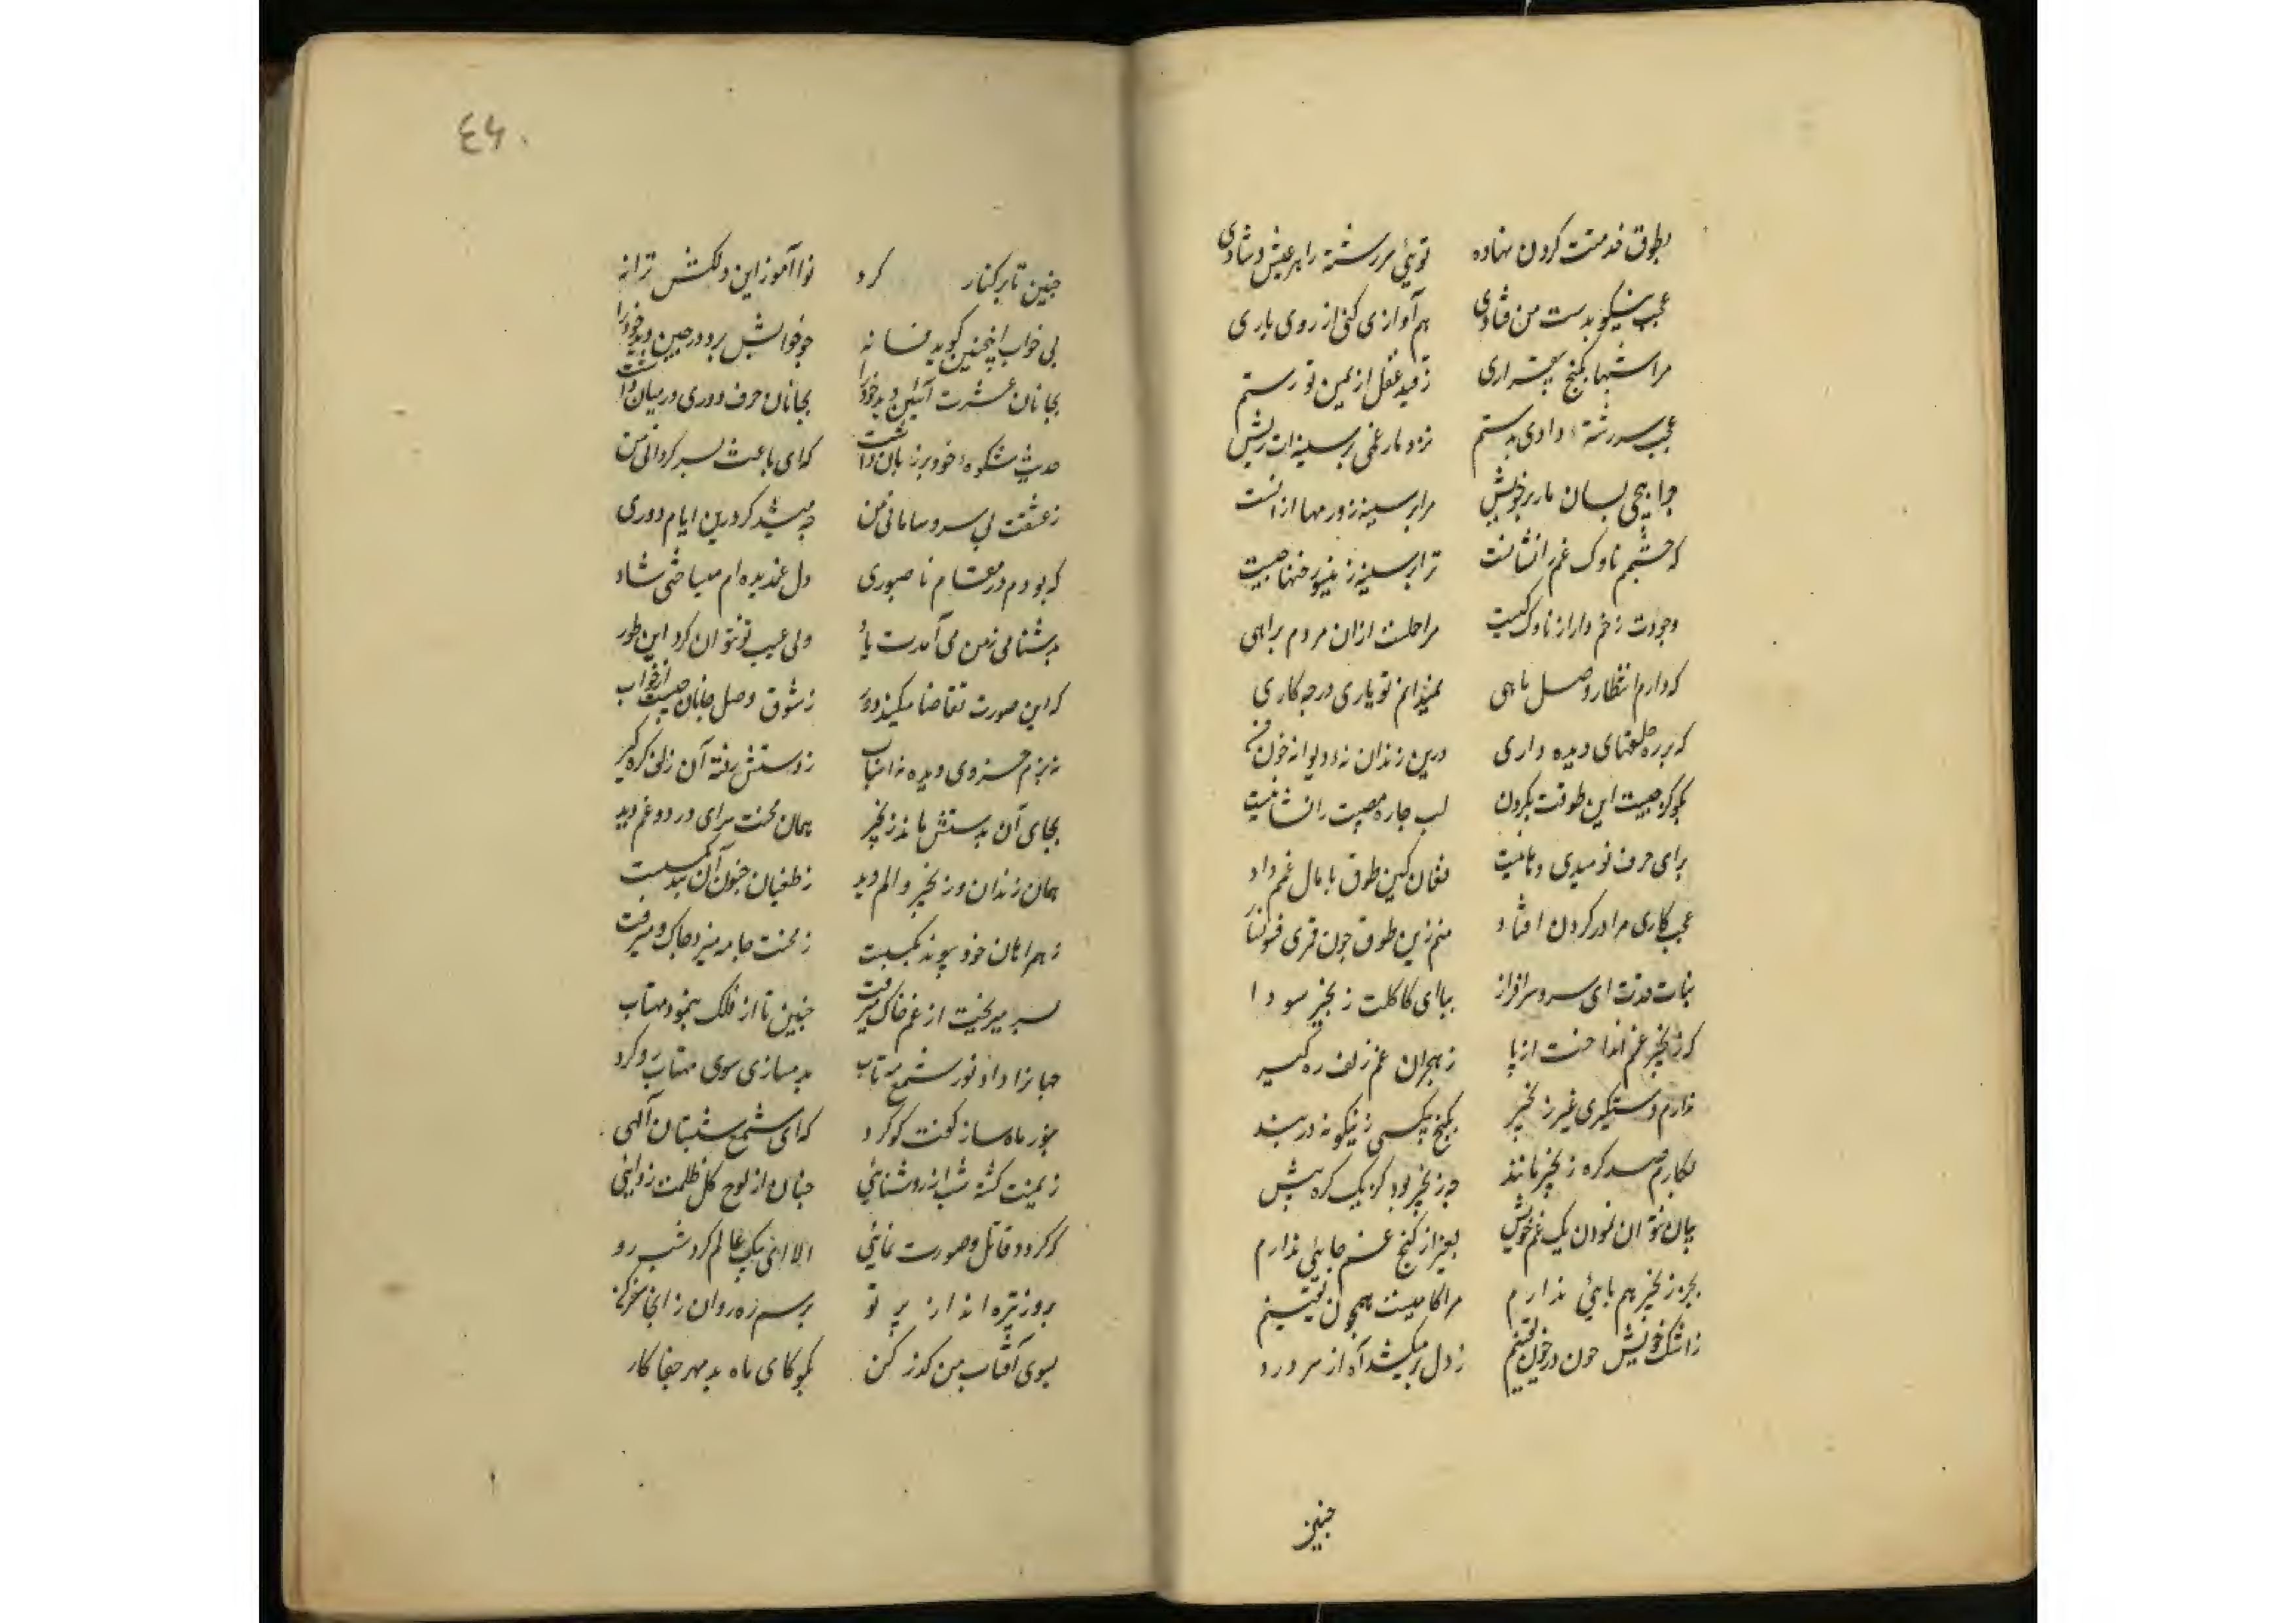 بطوق خدمتت کردن نهاده توئی سررشته را بهر عیش و شادی
عجب نیکو بدست من فتادی هم آوازی کنی از روی یاری
مرا شبها بکنج بیقراری ز قید عقل از یمن تو رستم
عجب سررشتهٔ دادی بدستم نزد مار غمی بر سینه‌ات ریش
چرا پیچی بسان مار بر خویش مرا بر سینه روزنها از انست
که چشمم ناوک غم را نشانست ترا بر سینه زینسان رخنها چیست
وجودت زخم دار از ناوک کیست مرا حلت ازان مردم براهی
که دارم انتظار وصل ماهی نمیدانم تو باری در چه کاری
که بر ره حلقهای دیده داری درین زندان نه دیوانه خون
بگو کز چیست این طوقت بگردن لب چاره مصیبت را نشانیست
برای حرف نومیدی دهانیست فغان کین طوق پامال غم داد
عجب کاری مرا در گردن افتاد منم زین طوق چون قمری
بیاد قدت ای سرو سرافراز بیا ای کاکلت زنجیر سودا
که زنجیر غم انداخت از پا ز هجران غم زلف ره گیر
ندارم دستگیری غیر زنجیر بکنج بیکسی زینگونه در بند
بکارم صد گره زنجیر مانند چه زنجیر بود کز یک گره بیش
بیان نتوان نمودن یک غم خویش بغیر از کنج غم جایی ندارم
بجز زنجیر هم پائی ندارم مرا کامیست همچون
ز اشک خویش چون در خون نشینم ز دل برمیکشد آه از سر درد
چنین
٤٦٠
چنین تا بر کنار کرد نوا آموز این دلکش ترانه
پی خواب اینچنین گوید فسانه چو خوابش برد در چین دید خود را
بجانان عشرت آئین دید خود را بجانان حرف دوری در میان داشت
حدیث شکوهٔ خود بر زبان داشت که ای باعث بسر گردانی من
ز عشقت بی سر و سامانی من چه میشد گر درین ایام دوری
که بودم در مقام ناصبوری دل غمدیده‌ام میساختی شاد
بدشنامی ز من می‌آمدت یاد ولی عیب تو نتوان کرد این طور
که این صورت تقاضا میکند دور ز شوق وصل جانان جست از خواب
نه بزم خسروی دیده نه اسباب ز دستش رفته آن زلف گره‌گیر
بجای آن بدستش مانده زنجیر همان محنت سرای درد و غم دید
همان زندان و زنجیر و الم دید ز طغیان جنون آن بند بگسست
ز همراهان خود پیوند بگسست ز محنت جامه میزد چاک و میرفت
بسر میریخت از غم خاک میرفت چنین تا از فلک بنمود مهتاب
جهانرا داد نور شمع مهتاب بدمسازی سوی مهتاب رو کرد
بنور ماه ساز گفت گو کرد که ای شمع شبستان الهی
ز یمنت گشته شب از روشنایی چنان از لوح کل ظلمت زدایی
که گردد قابل صورت نمایی الا ای پیک عالم گرد شب رو
بروز تیره اندازنده پرتو برسم رهروان ز اینجا سفر کن
بسوی آفتاب من گذر کن بگو کای ماه بدمهر جفاکار